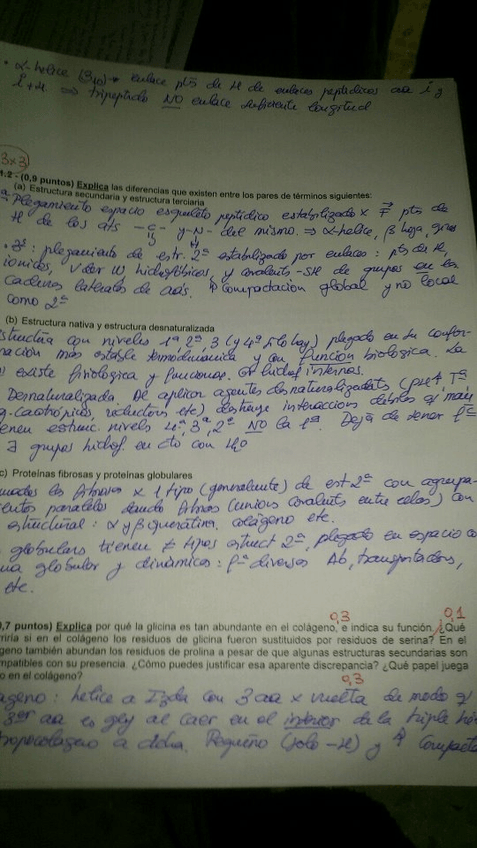 • α-helice (3₁₀) → enlace pts de H de enlaces peptidicos aa i y
i+4 ⇒ tripeptido NO enlace suficiente longitud
3x3
1.2 - (0,9 puntos) Explica las diferencias que existen entre los pares de términos siguientes:
(a) Estructura secundaria y estructura terciaria
Plegamiento espacio esqueleto peptidico estabilizado x F pts de
H de los dts -C- y -N- del mismo. ⇒ α-helice, β hoja, giros
O H
• 3ª: plegamiento de estr. 2ª estabilizado por enlaces: pts de H,
ionicos, V der W, hidrofóbicos, y covalents -SH de grupos en las
cadenas laterales de aa's. Compactacion global y no local
como 2ª
(b) Estructura nativa y estructura desnaturalizada
structura con niveles 1ª 2ª 3 (y 4ª si lo hay) plegado en su confor-
mación más estable termodinamica y con funcion biologica. La
existe fisiologica y funcional. Gr hidrof internos.
Desnaturalizada. Al aplicar agentes desnaturalizadts (pH, Tª
g. caotrópicos, reductors etc) deshace interaccions debiles q'
estruc. niveles 4ª, 3ª, 2ª NO la 1ª. Deja de tener fᶜⁿ
∃ grupos hidrof. en cto con H₂O
c) Proteínas fibrosas y proteínas globulares
x 1 tipo (generalmente) de est 2ª con agrupa-
paralelos dando fibras (unions covalents entre celas) con
estructural: α y β queratina, colágeno etc.
globulars tienen ≠ tipos estruct 2ª, plegado en espacio
globular y dinámicas: fⁿ diversas Ab, transportadors,
etc.
0,3 0,1
0,7 puntos) Explica por qué la glicina es tan abundante en el colágeno, e indica su función. ¿Qué
rriría si en el colágeno los residuos de glicina fueron sustituidos por residuos de serina? En el
geno también abundan los residuos de prolina a pesar de que algunas estructuras secundarias son
mpatibles con su presencia. ¿Cómo puedes justificar esa aparente discrepancia? ¿Qué papel juega
o en el colágeno?
0,3
ageno: helice a Izda con 3 aa x vuelta de modo q'
3er aa es gly al caer en el interior de la triple
tropocolageno a dcha. Pequeño (solo -H) y